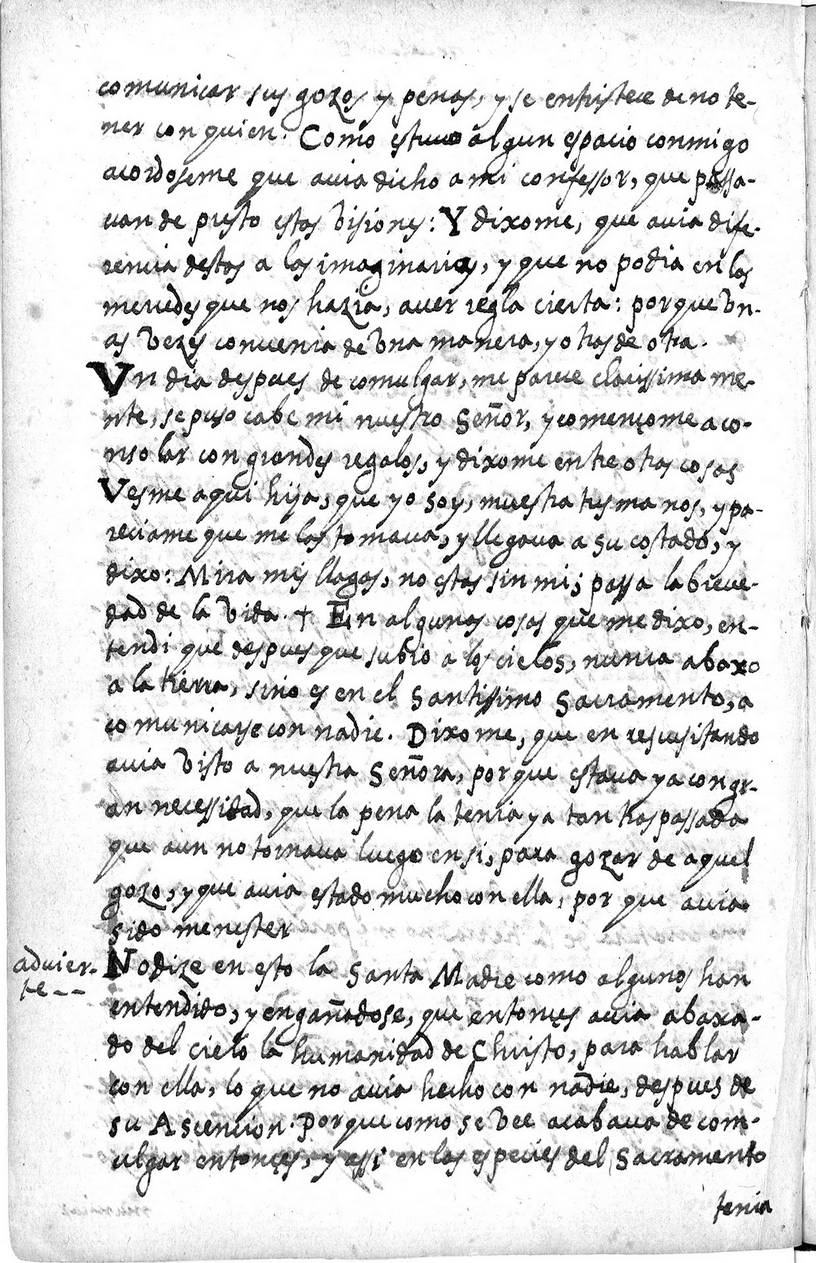 comunicar sus gozos y penas, y se entristece de no te-
ner con quien. Como estuuo algun espacio conmigo
acordoseme que auia dicho a mi confessor, que passa-
uan de presto estas visiones: Y dixome, que auia dife-
rencia destas a las imaginarias, y que no podia en las
mercedes que nos hazia, auer regla cierta: porque vn-
as vezes conuenia de vna manera, y otras de otra.
Vn dia despues de comulgar, me parece clarissima me-
nte, se puso cabe mi nuestro Señor, y començome a co-
nsolar con grandes regalos, y dixome entre otras cosas
Vesme aqui hija, que yo soy, muestra tus manos, y pa-
reciame que me las tomaua, y llegaua a su costado, y
dixo: Mira mis llagas, no estas sin mi; passa la breue-
dad de la vida. + En algunas cosas que me dixo, en-
tendi que despues que subio a los cielos, nunca abaxo
a la tierra, sino es en el Santissimo Sacramento, a
comunicarse con nadie. Dixome, que en rescusitando
auia visto a nuestra Señora, porque estaua ya con gr-
an necessidad, que la pena la tenia ya tan traspassada
que aun no tornaua luego en si, para gozar de aquel
gozo, y que auia estado mucho con ella, por que auia
sido menester
advier-
te--
No dize en esto la Santa Madre como algunos han
entendido, y engañadose, que entonces auia abaxa-
do del cielo la humanidad de Christo, para hablar
con ella, lo que no auia hecho con nadie, despues de
su Ascencion. Porque como se vee acabaua de com-
ulgar entonçes, y assi en las especies del Sacramento
tenia